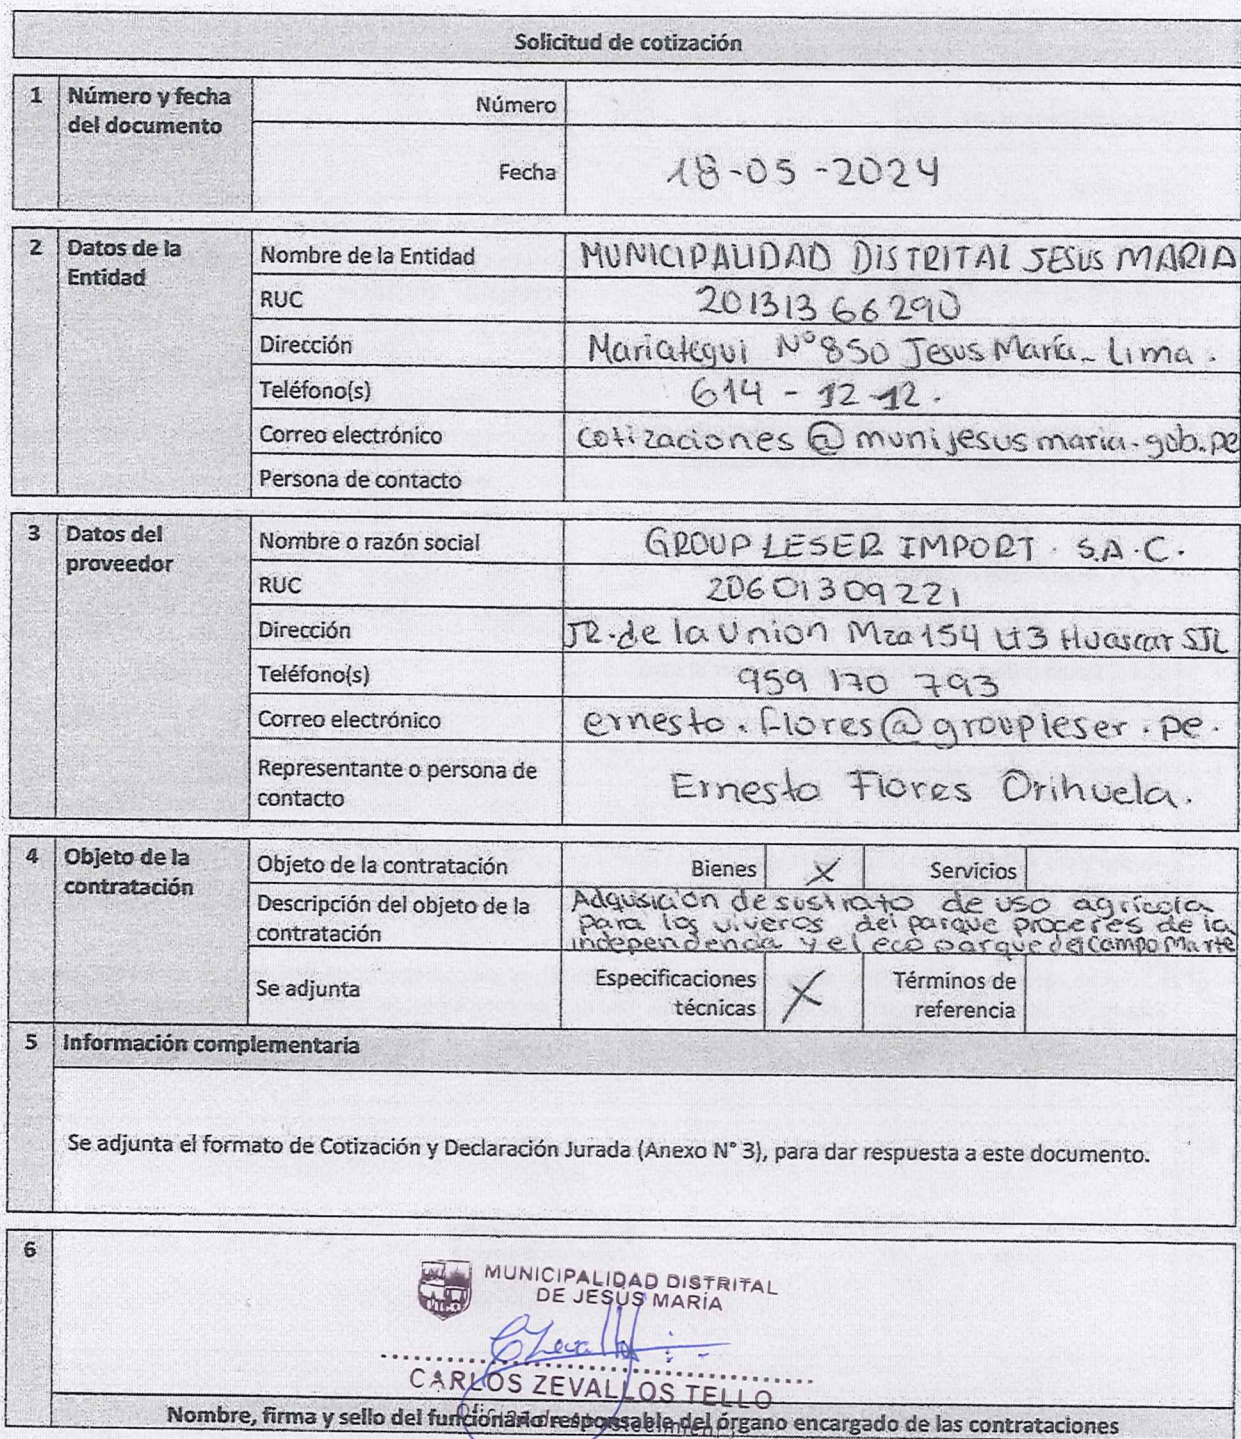 Solicitud de cotización
1 Número y fecha del documento
Número
Fecha 18-05-2024
2 Datos de la Entidad
Nombre de la Entidad MUNICIPALIDAD DISTRITAL JESUS MARIA
RUC 20131366290
Dirección Mariategui N°850 Jesus María - Lima.
Teléfono(s) 614 - 12-12.
Correo electrónico cotizaciones@munijesusmaria.gob.pe
Persona de contacto
3 Datos del proveedor
Nombre o razón social GROUP LESER IMPORT S.A.C.
RUC 20601309221
Dirección JR. de la Union Mza 154 Lt3 Huascar SJL
Teléfono(s) 959 170 793
Correo electrónico ernesto.flores@groupleser.pe.
Representante o persona de contacto Ernesto Flores Orihuela.
4 Objeto de la contratación
Objeto de la contratación Bienes X Servicios
Descripción del objeto de la contratación Adqusición de sustrato de uso agrícola
para los viveros del parque proceres de la
independencia y el eco parque del Campo Marte
Se adjunta Especificaciones técnicas X Términos de referencia
5 Información complementaria
Se adjunta el formato de Cotización y Declaración Jurada (Anexo N° 3), para dar respuesta a este documento.
6
MUNICIPALIDAD DISTRITAL
DE JESÚS MARÍA
CARLOS ZEVALLOS TELLO
Nombre, firma y sello del funcionario responsable del órgano encargado de las contrataciones